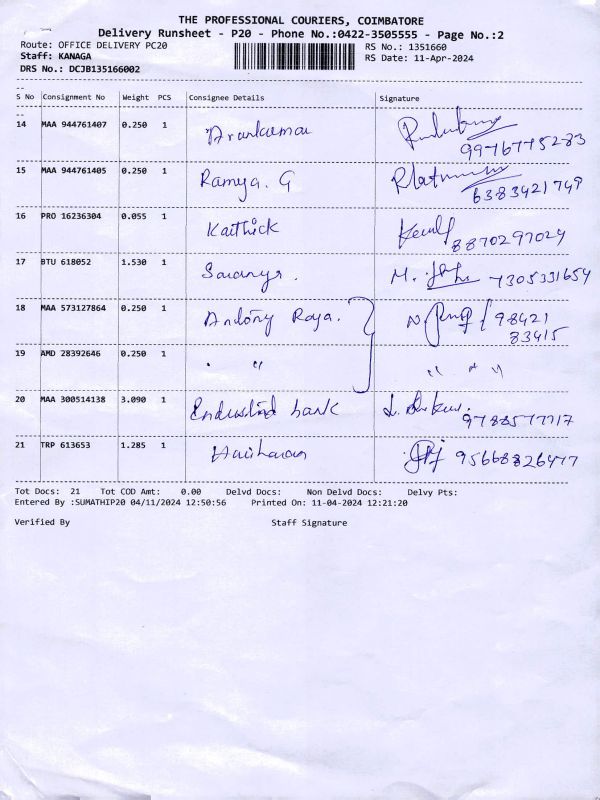 THE PROFESSIONAL COURIERS, COIMBATORE
Delivery Runsheet - P20 - Phone No.:0422-3505555 - Page No.:2
Route: OFFICE DELIVERY PC20 RS No.: 1351660
Staff: KANAGA RS Date: 11-Apr-2024
DRS No.: DCJB135166002
S No Consignment No Weight PCS Consignee Details Signature
14 MAA 944761407 0.250 1 Arunkumar
9976775283
15 MAA 944761405 0.250 1 Ramya. G
6383421749
16 PRO 16236304 0.055 1 Karthick
8870297029
17 BTU 618052 1.530 1 Saranya. M. 7305331654
18 MAA 573127864 0.250 1 Antony Raja. N 98421
83415
19 AMD 28392646 0.250 1 " " " "
20 MAA 300514138 3.090 1 Enduslind bank
9788577717
21 TRP 613653 1.285 1 Hariharan 95668826477
Tot Docs: 21 Tot COD Amt: 0.00 Delvd Docs: Non Delvd Docs: Delvy Pts:
Entered By :SUMATHIP20 04/11/2024 12:50:56 Printed On: 11-04-2024 12:21:20
Verified By Staff Signature